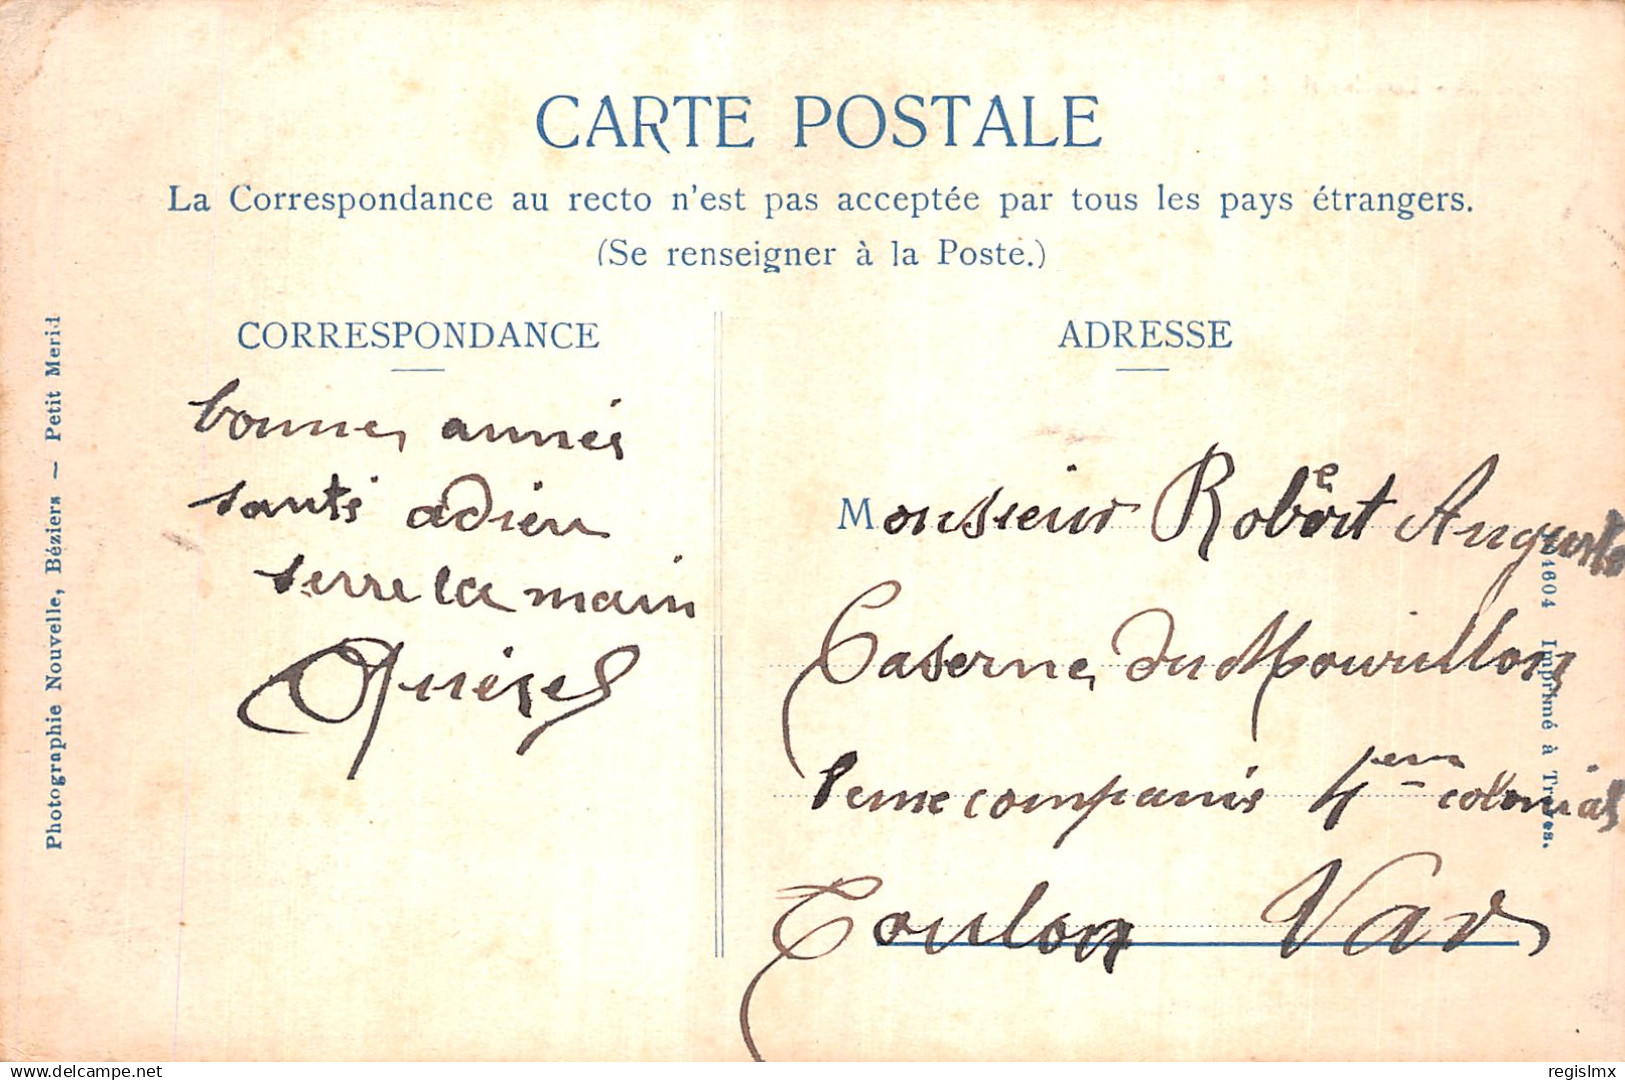 CARTE POSTALE
La Correspondance au recto n'est pas acceptée par tous les pays étrangers.
(Se renseigner à la Poste.)
CORRESPONDANCE
bonne année
santé adieu
serre la main
ADRESSE
Monsieur Robert Auguste
Caserne du Mourillon
1eme companie 4eme colonial
Toulon Var
Photographie Nouvelle, Béziers — Petit Merid
4604 Imprimé à Troyes.
delcampe.net
regislmx